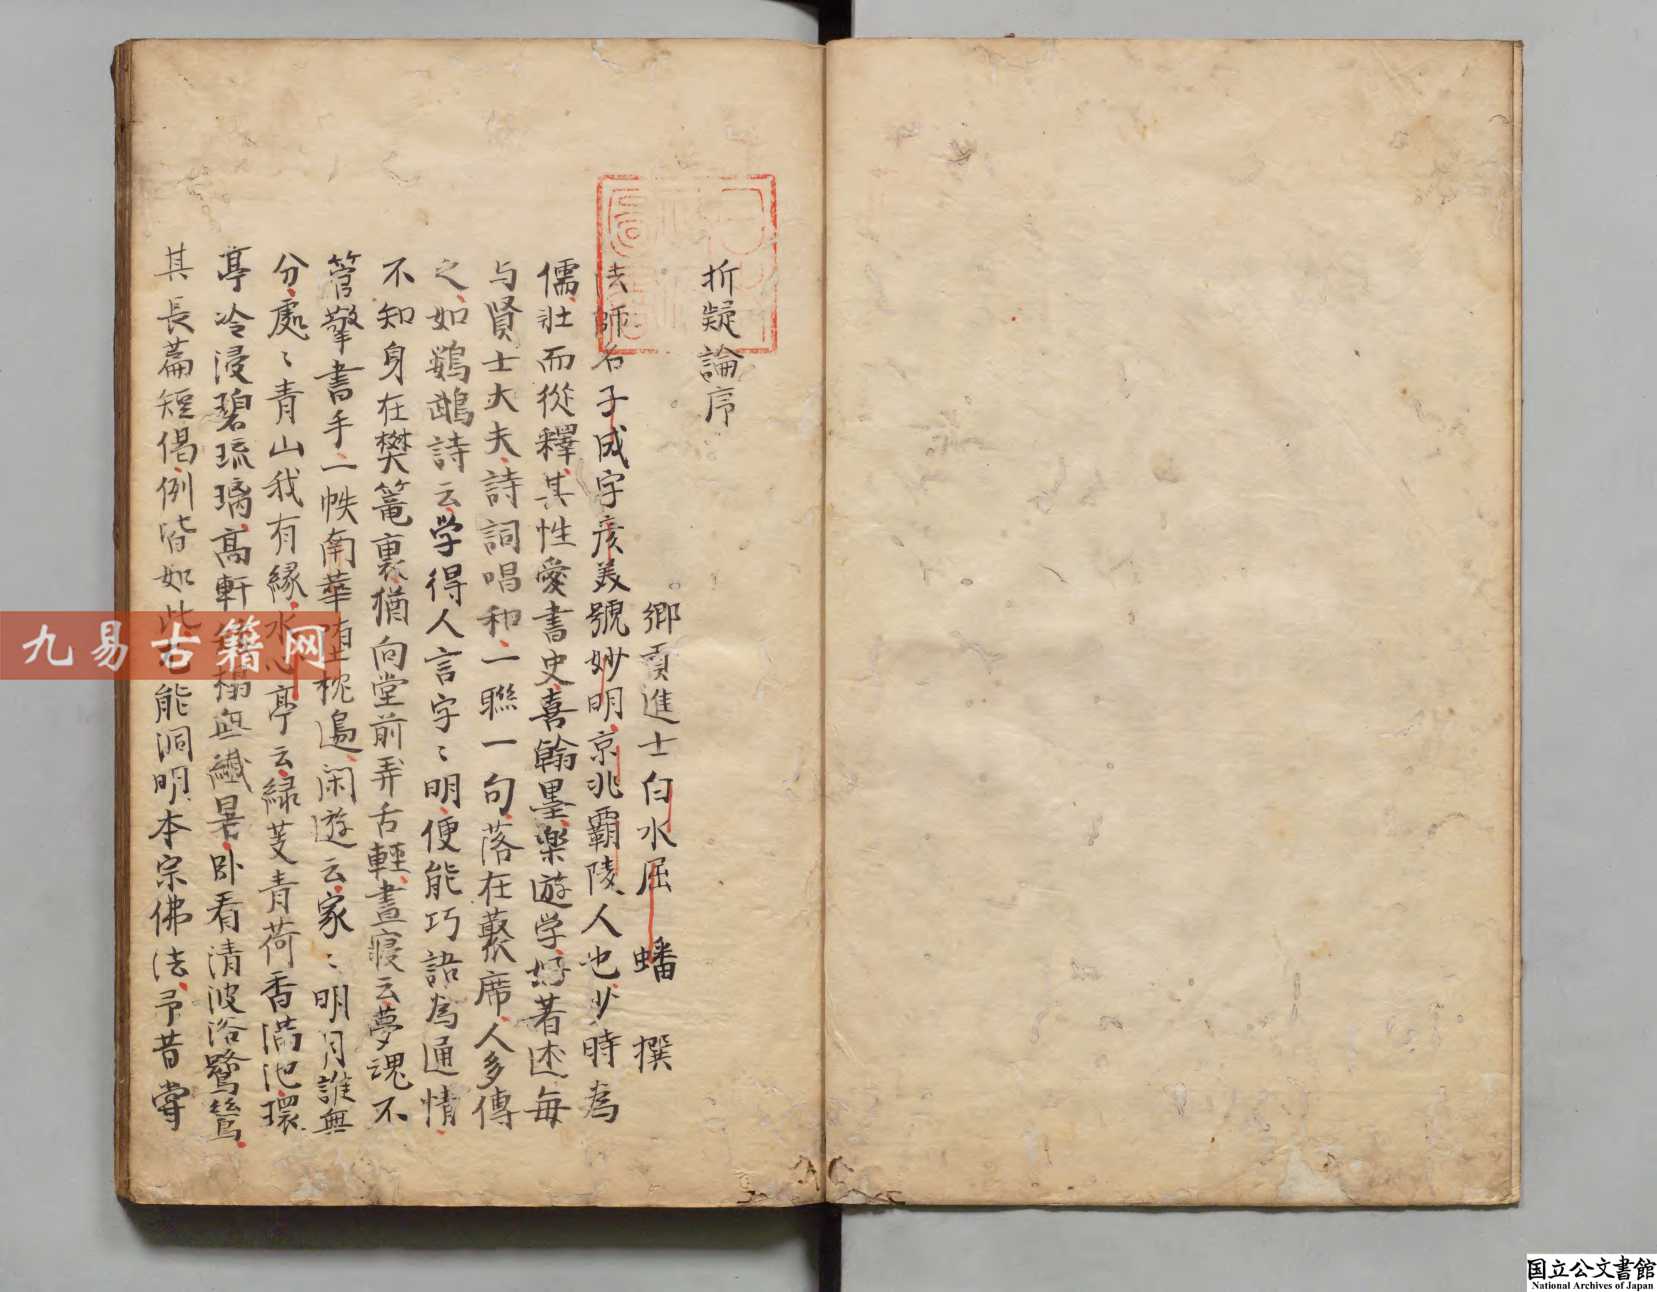 折疑論序
鄉貢進士白水屈蟠撰
法師名子成字彦美號妙明京兆霸陵人也少時為
儒壯而從釋其性愛書史喜翰墨楽遊学好著述每
与賢士大夫詩詞唱和一聮一句落在叢席人多傳
之如鸚鵡詩云学得人言字〻明便能巧語為通情
不知身在樊篭裏猶向堂前弄舌輕晝寢云夢魂不
管擎書手一帙南華堕枕邉闲遊云家〻明月誰無
分處〻青山我有緣水心亭云緑芰青荷香满池環
亭冷浸碧琉璃髙軒榻無纖暑卧看清波浴鷺鷥
其長篇短偈例皆如此能洞明本宗佛法予昔嘗
九易古籍网
国立公文書館
National Archives of Japan